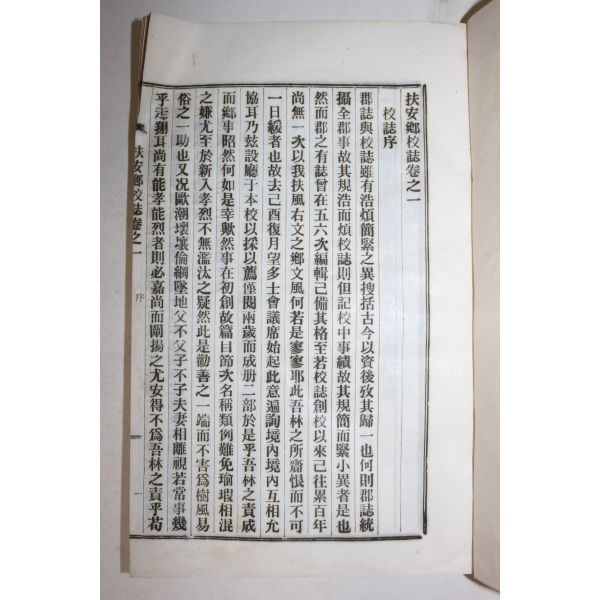 扶安鄉校誌卷之一
校誌序
郡誌與校誌雖有浩煩簡緊之異搜括古今以資後攷其歸一也何則郡誌統
攝全郡事故其規浩而煩校誌則但記校中事績故其規簡而緊小異者是也
然而郡之有誌曾在五六次編輯已備其格至若校誌創校以來已往累百年
尚無一次以我扶風右文之鄉文風何若是寥寥耶此吾林之所齎恨而不可
一日緩者也故去己酉復月望多士會議席始起此意遍詢境內境內互相允
協耳乃玆設廳于本校以採以薦僅閱兩歲而成册二部於是乎吾林之責成
而鄉事昭然何如是幸歟然事在初創故篇目節次名稱類例難免瑜瑕相混
之嫌尤至於新入孝烈不無濫汰之疑然此是勸善之一端而不害爲樹風易
俗之一助也又况歐潮壞壤倫綱墜地父不父子不子夫妻相離視若常事幾
乎走獬耳尚有能孝能烈者則必嘉尚而闡揚之尤安得不爲吾林之責乎苟
扶安鄉校誌卷之一
序
一